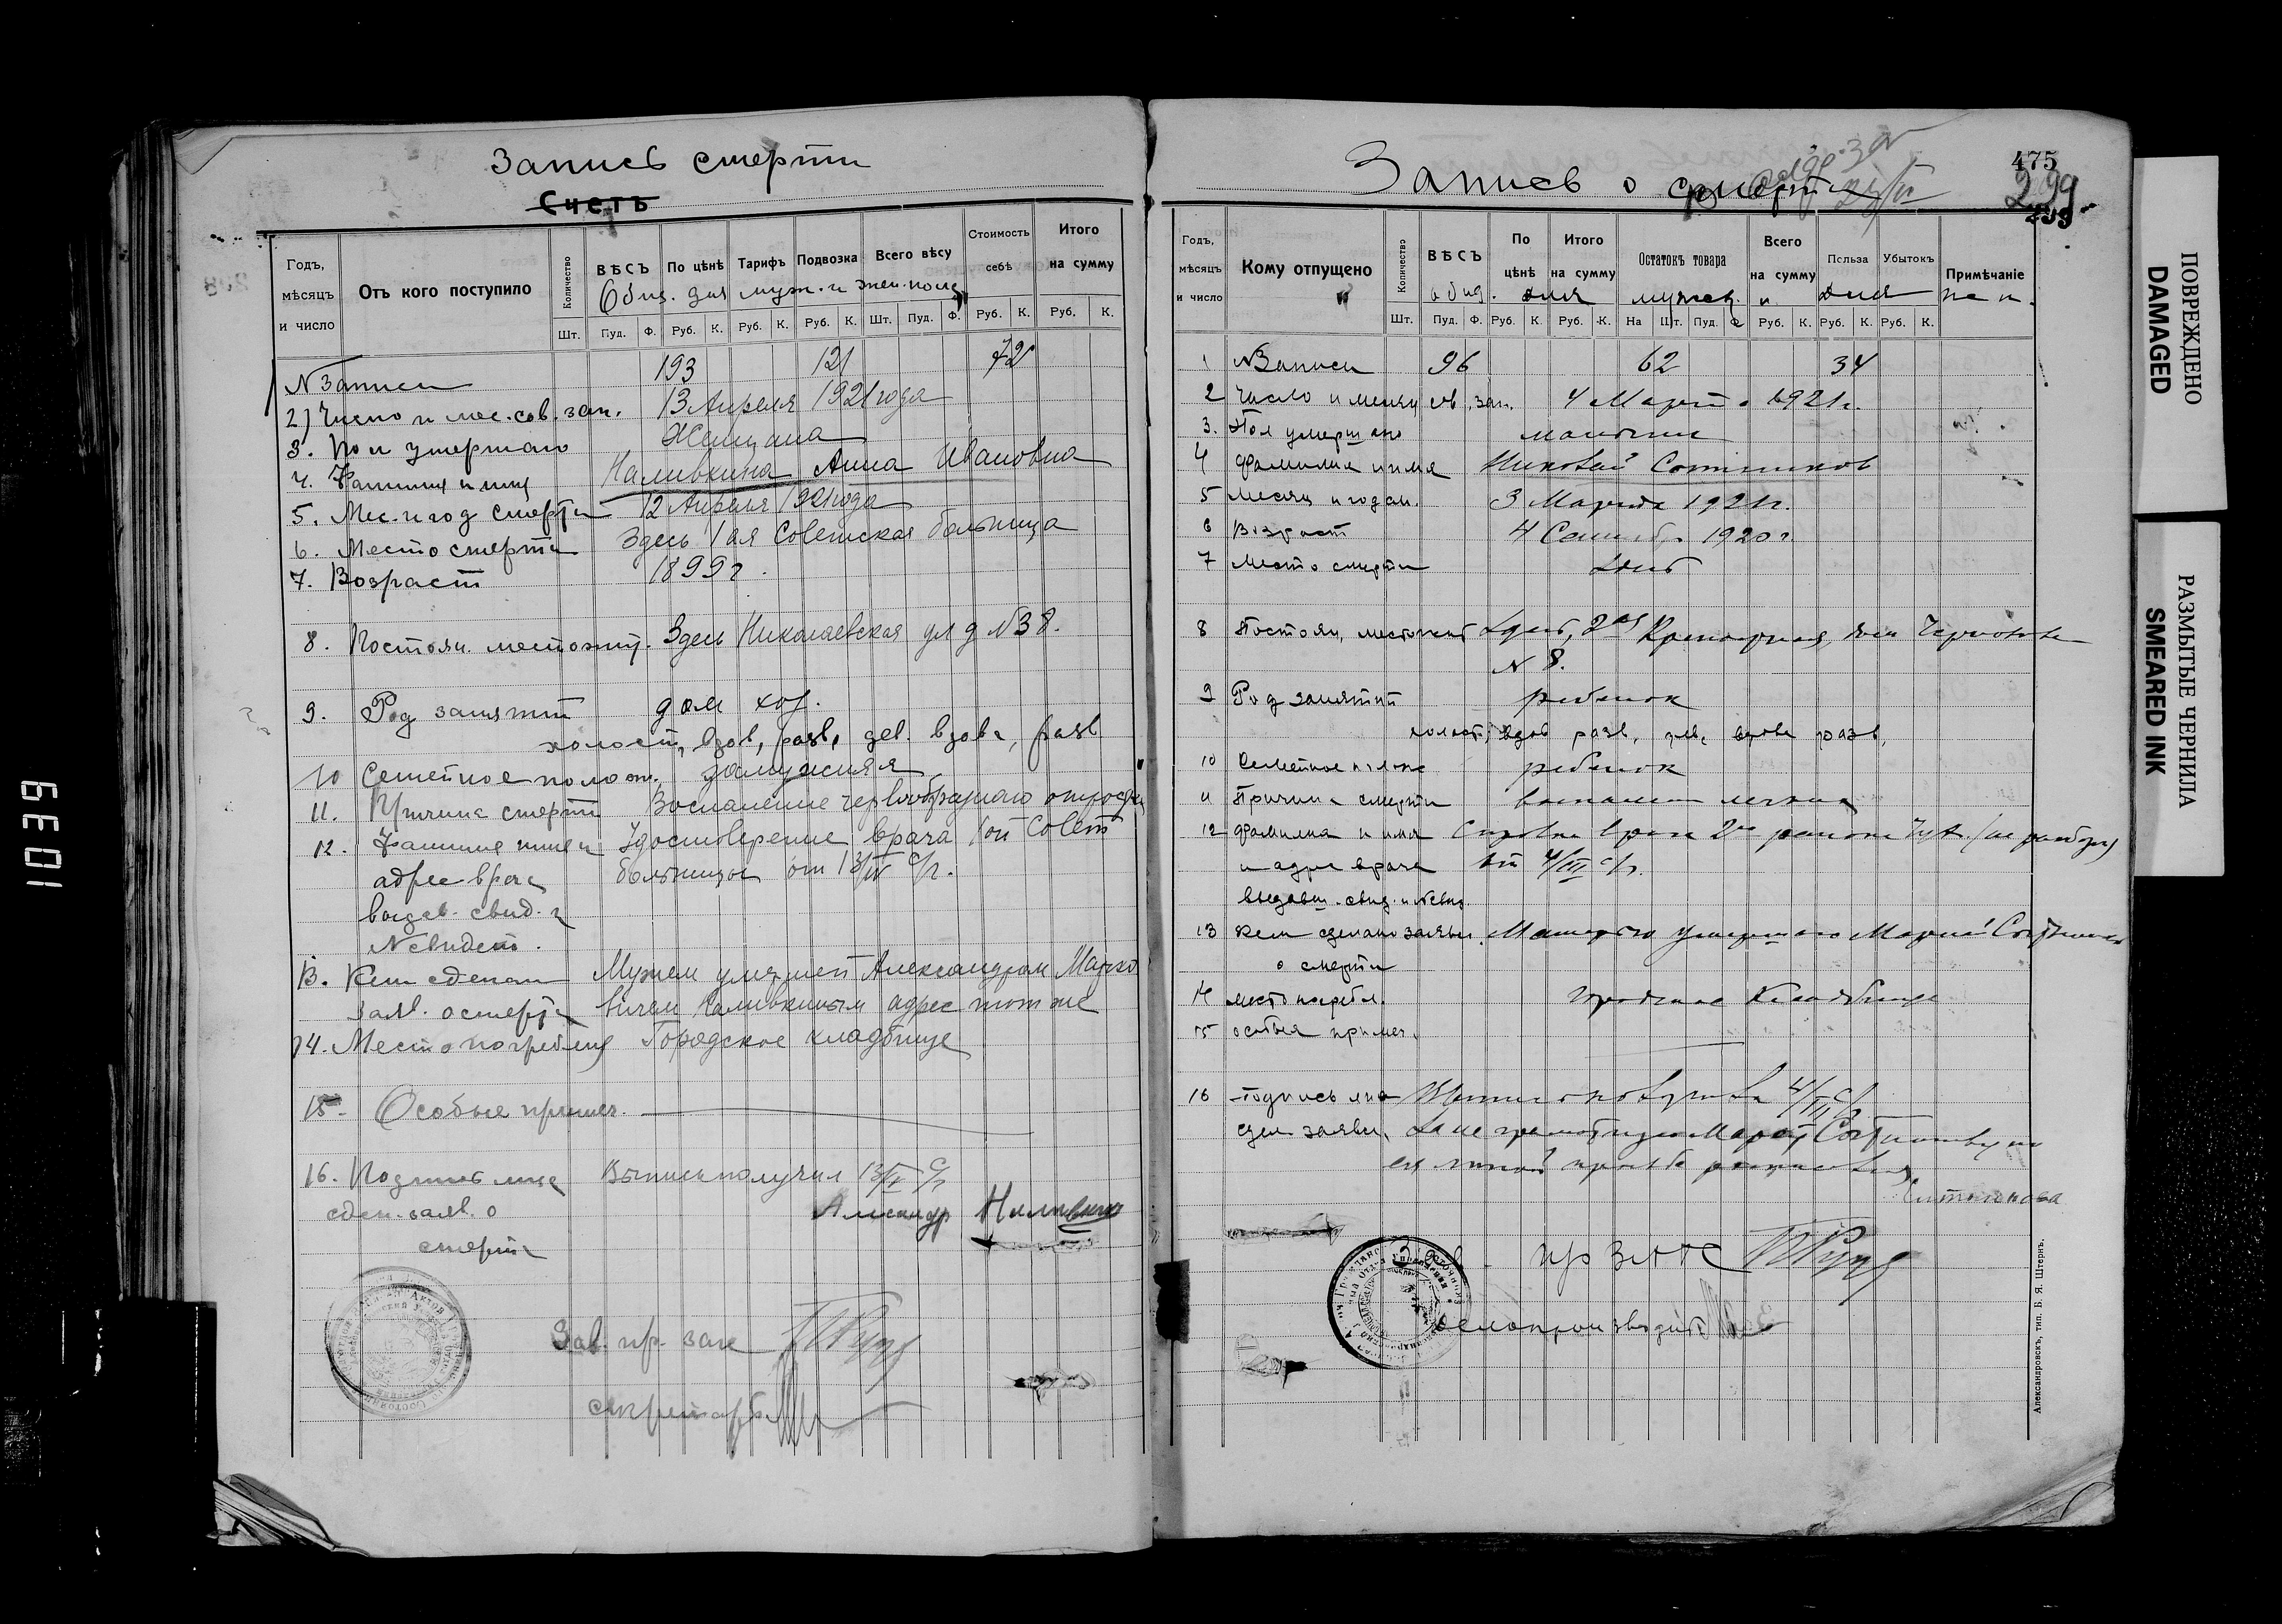 Запись смерти
Счетъ
Годъ, мѣсяцъ и число
Отъ кого поступило
Количество
ВѢСЪ
По цѣнѣ
Тарифъ
Подвозка
Всего вѣсу
Стоимость себѣ
Итого на сумму
Общ. для муж. и жен. пола
Шт. Пуд. Ф. Руб. К. Руб. К. Руб. К. Шт. Пуд. Ф. Руб. К. Руб. К.
N записи 193 121 72
2) Число и мес. сов. зап. 13 Апреля 1921 года
3. Пол умершаго Женщина
4. Фамилия и имя Наливкина Анна Ивановна
5. Мес. и год смерти 12 Апреля 1921 года
6. Место смерти Здесь 1ая Советская больница
7. Возраст 1899 г.
8. Постоян. местожит. Здесь Николаевская ул д N 38.
9. Род занятий дом хоз.
холост, вдов, разв, дев. вдова, разв
10 Семейное полож. замужняя
11. Причина смерти Воспаление червеобразнаго отростка
12. Фамилия имя и Удостоверение врача 1ой Совет
адрес врача больницы от 13/IV с/г.
выдав. свид. и
N свидет.
13. Кем сделан Мужем умершей Александром Марко
заяв. о смерти вичем Наливкиным адрес тот же
14. Место погребения Городское кладбище
15. Особые примеч.
16. Подпись лица Выпись получил 13/IV с/г
сдел. заяв. о Александр Наливкин
смерти
Зав. пр. зап
секретарь
475
299.
239
Запись о смерти
Годъ, мѣсяцъ и число
Кому отпущено
Количество
ВѢСЪ
По цѣнѣ
Итого на сумму
Остатокъ товара
Всего на сумму
Польза
Убытокъ
Примѣчаніе
общ. для мужск. и для
Шт. Пуд. Ф. Руб. К. Руб. К. На Шт. Пуд. Ф. Руб. К. Руб. К. Руб. К.
1 N Записи 96 62 34
2 Число и месяц сов. зап. 4 Марта 1921 г.
3. Пол умершаго мальчик
4 Фамилия и имя Николай Сотников
5 Месяц и год см. 3 Марта 1921 г.
6 Возраст 4 Сентября 1920 г.
7 Место смерти Здесь
8 Постоян. местожит Здесь, 2ая
N 8.
9 Род занятий ребенок
холост, вдов разв, дев, вдова разв,
10 Семейное полож ребенок
11 Причина смерти воспаление легких
12 Фамилия и имя Справка врача 2го района
и адрес врача от 4/III с/г.
выдавш. свид. и N свид.
13 Кем сделано заявл. Матерью умершаго Марией
о смерти
14 место погребл. городское Кладбище
15 особыя примеч.
16 подпись лиц 4/III с/г
сдел заявл. За неграмотную Марию
Зав. пр ЗАГС
Делопроизводит
Александровскъ, тип. Б. Я. Штернъ.
ПОВРЕЖДЕНО
DAMAGED
РАЗМЫТЫЕ ЧЕРНИЛА
SMEARED INK
1039